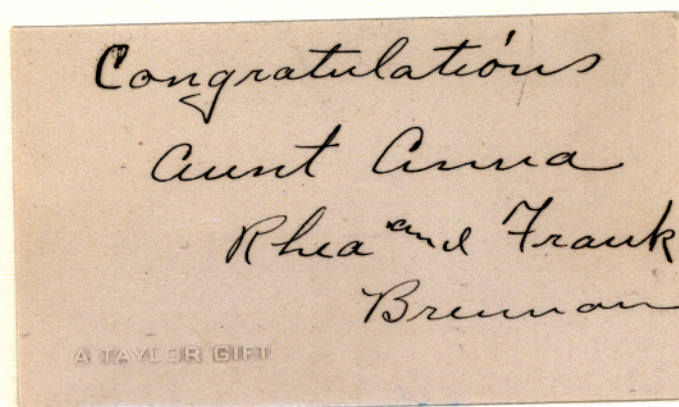 Congratulations
Aunt Anna
Rhea and Frank
Brennan
A TAYLOR GIFT